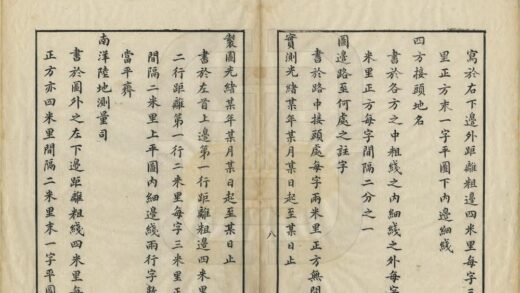 寫於右下邊外距離粗綫四米里每字三
里正方末一字平圖下邊細綫
四方接頭地名
書於各方之中粗綫之內細綫之外每字
米里正方每字間隔二分之一
圖邊路至何處之註字
書於路中接頭處每字兩米里正方無間
實測光緒某年某月某日起至某日止
八
製圖光緒某年某月某日起至某日止
書於左首上邊第一行距離粗邊四米里
二行距離第一行二米里每字三米里正
間隔二米里上平圖內細邊綫兩行字數
當平齊
南洋陸地測量司
書於圖外之左下邊距離粗綫四米里每
正方亦四米里間隔二米里末一字平圖